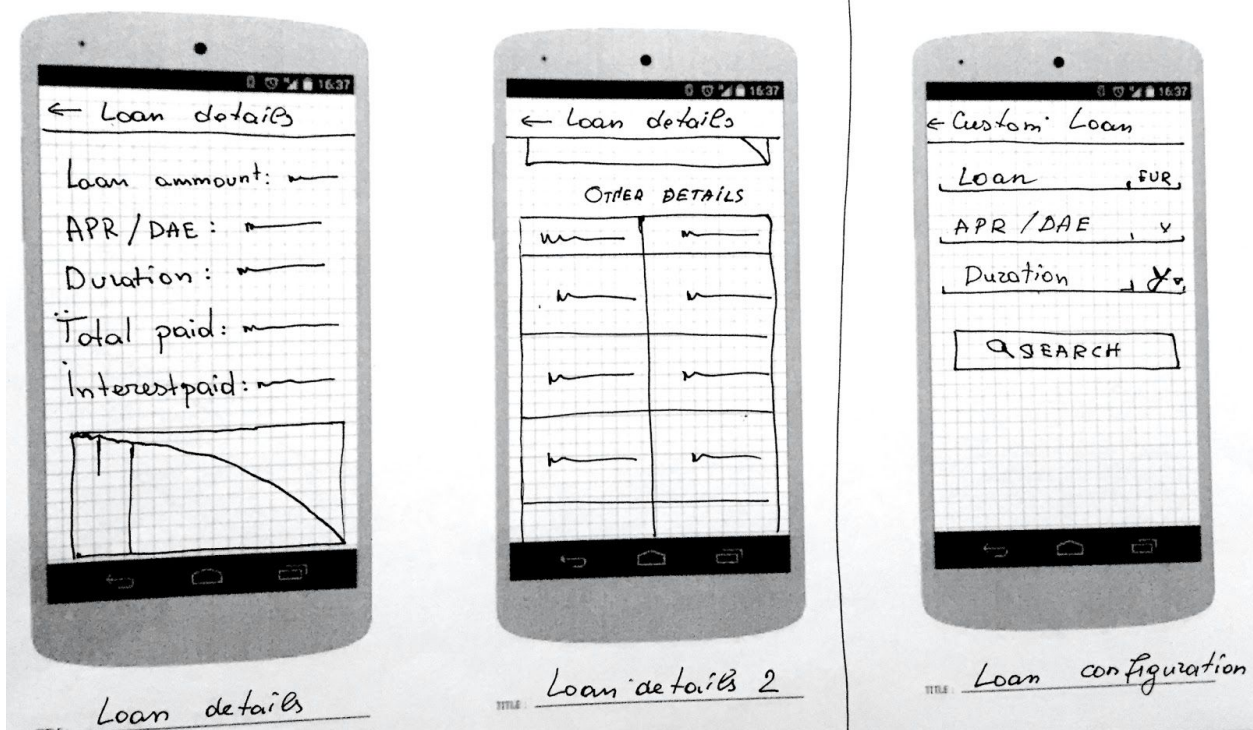 16:37
← Loan details
Loan ammount:
APR / DAE :
Duration :
Total paid:
Interest paid:
Loan details
16:37
← Loan details
OTHER DETAILS
TITLE : Loan details 2
16:37
← Custom Loan
Loan EUR
APR / DAE
Duration
SEARCH
TITLE : Loan configuration